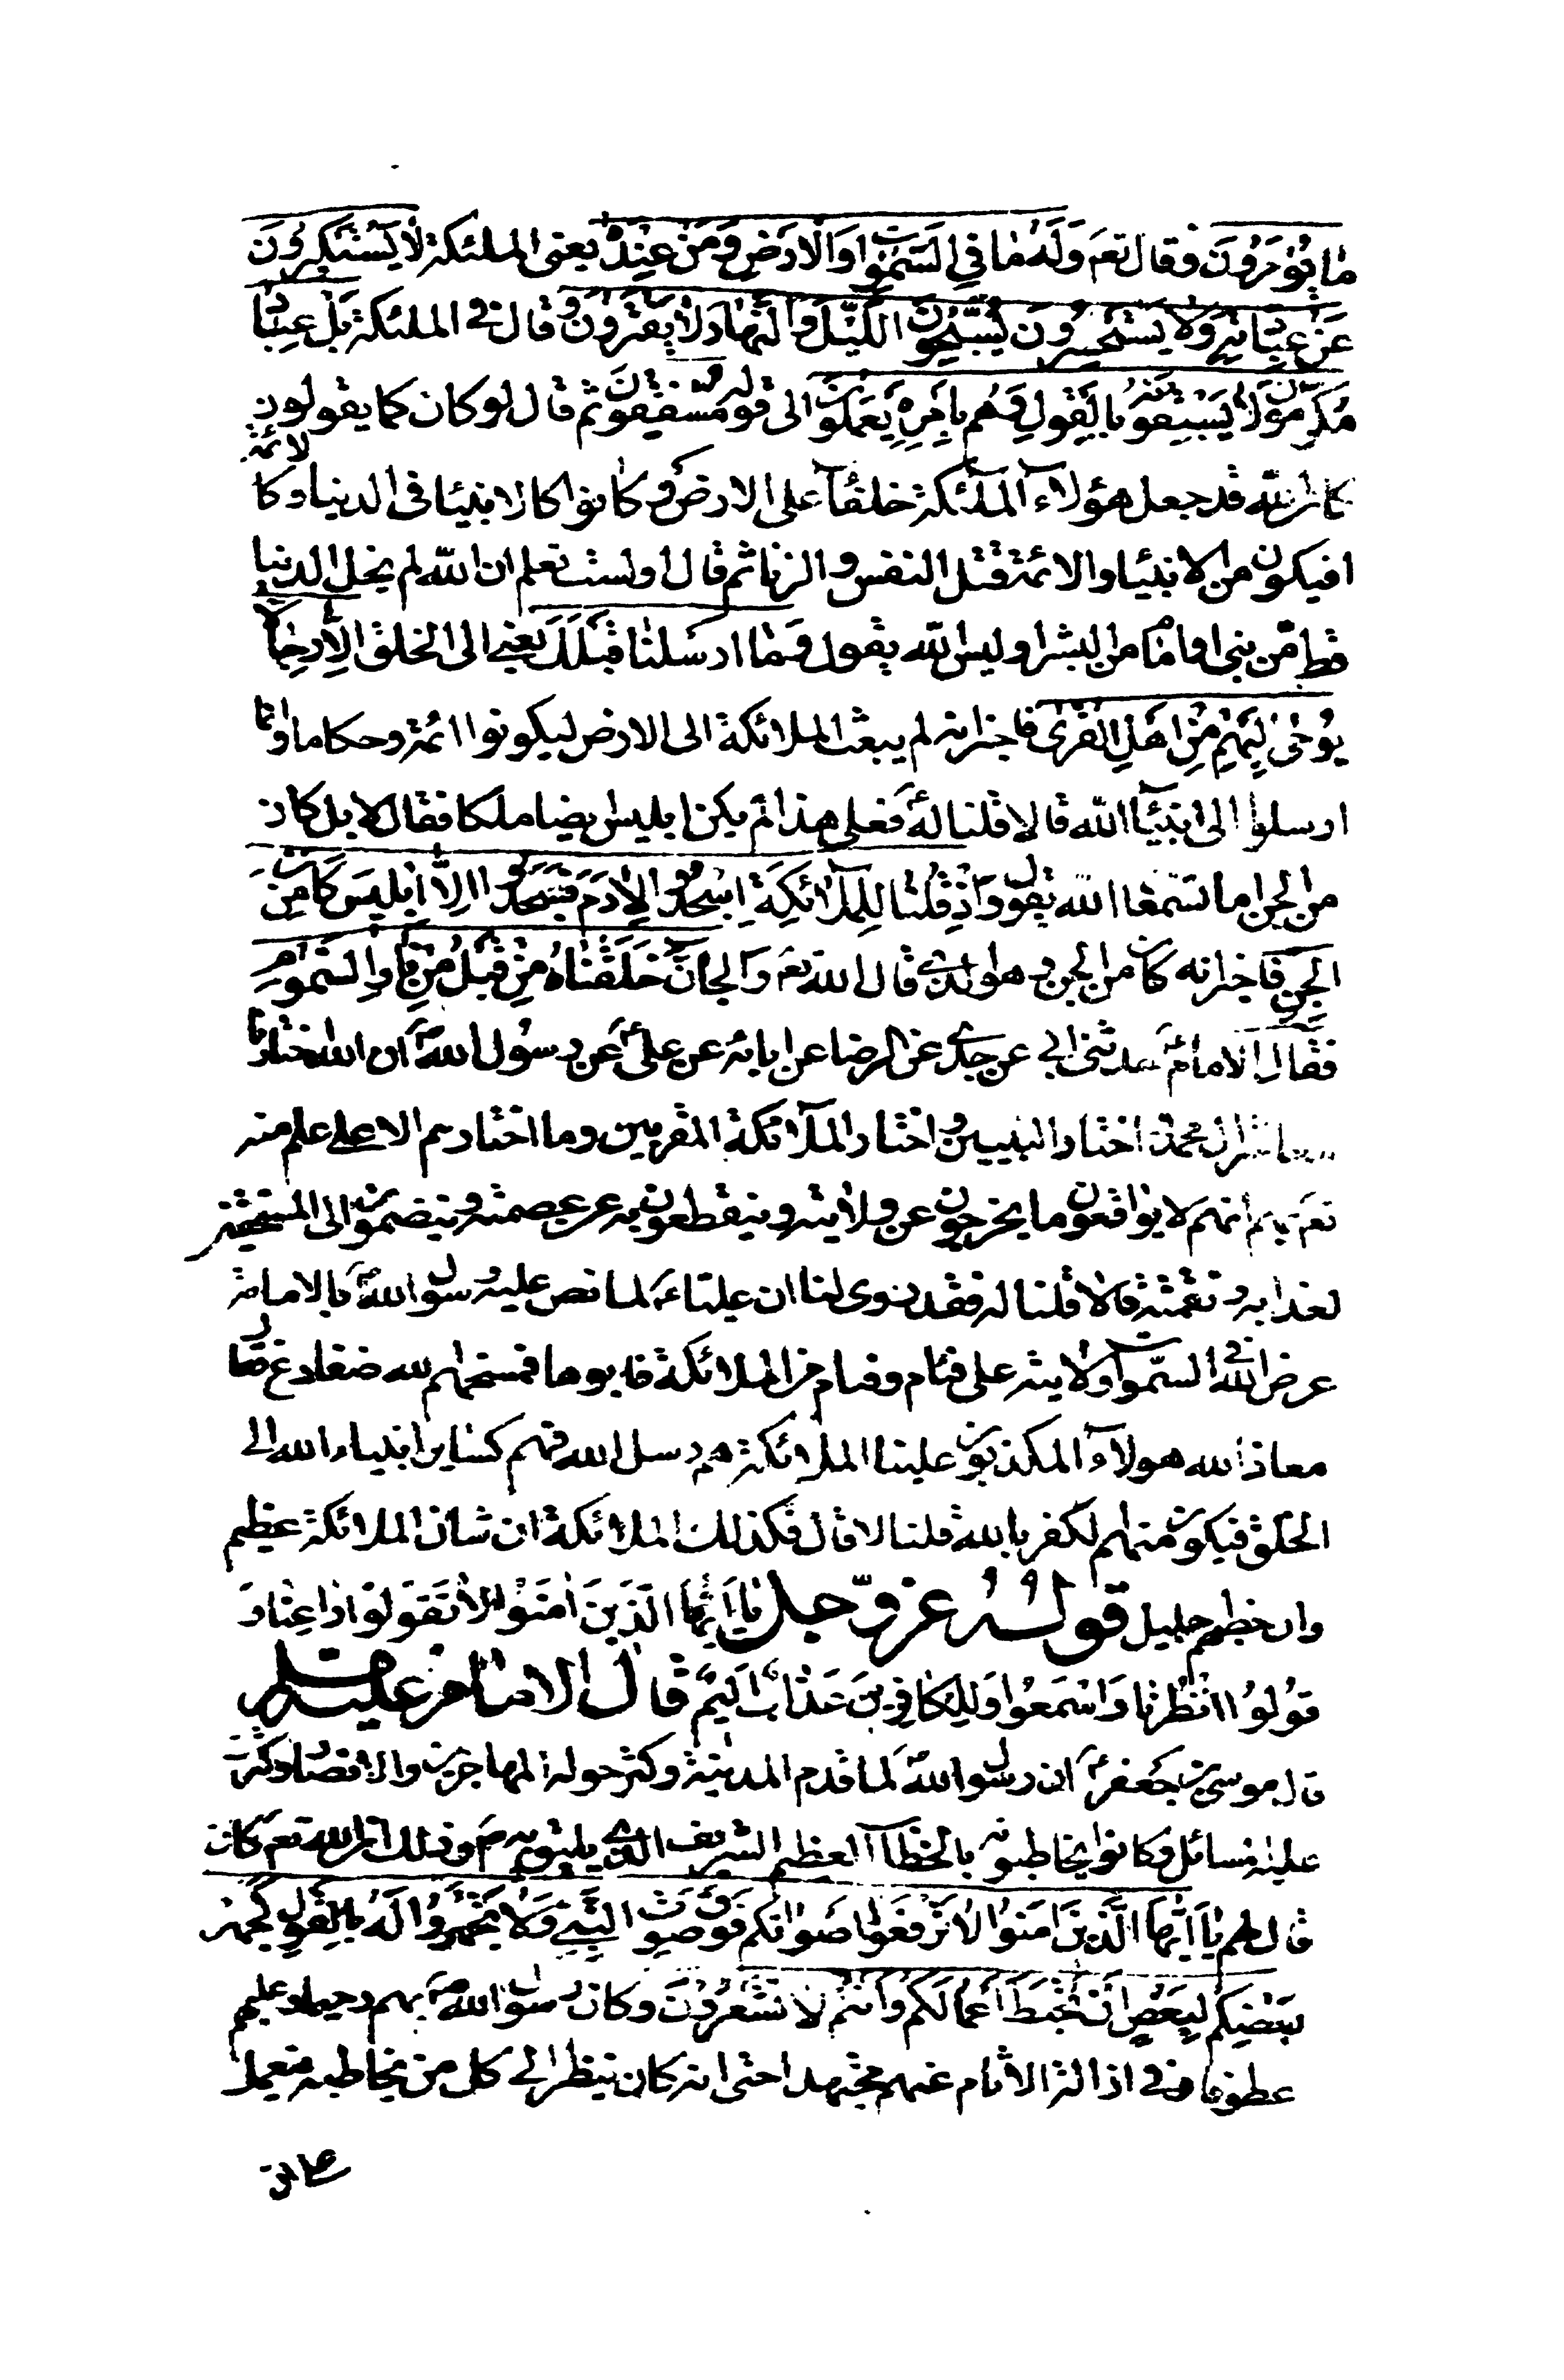 مٰا يُؤمَرُونَ وقال تعَ وَلَهُ مٰا في السَّمٰوٰاتِ وَالْاَرَضِ وَ مَنْ عِنْدَهُ يعنى الملئكة لٰا يَسْتَكبِرُونَ
عَنْ عِبٰادَتِهِ وَلٰا يَسْتَحْسِرُونَ يُسَبِّحُونَ اللَّيْلَ وَالنَّهٰارَ لٰا يَفْتَرُونَ و قال فى الملئكة بَلْ عِبٰادٌ
مُكْرَمُونَ لٰا يَسْبِقُونَهُ بِالْقَوْلِ وَهُم بِاَمْرِهِ يَعْمَلُونَ الى قوله مُشْفِقُونَ ثم قال لو كان كما يقولون
كان الله قد جعل هؤلاء الملآئكة خلفآءَ على الارض و كانوا كالانبيٓا فى الدنيا و كالائمة
افيكون من الانبيٓا و الائمة قتل النفس و الزنا ثم قال اولست تعلم ان الله لم يخل الدنيا
قط من نبى او امام من البشر اوليس الله يقول وَمٰا ارسَلنٰا قَبْلَكَ يعني الى الخلق اِلّٰا رِجٰالاً
يُوحٰى اِلَيْهِمْ مِنْ اَهْلِ القُرىٰ فاخبر انه لم يبعث الملائكة الى الارض ليكونوا ائمة و حكاما و انما
ارسلوا الى انبيٓاء الله قالا قلنا له فعلى هذا لم يكن ابليس ايضا ملكا فقال لا بل كان
من الجن اما تسمعا الله يقول وَاِذْ قُلْنا لِلْمَلٰائِكَةِ اسْجُدُوا لِاٰدَمَ فَسَجَدُوا اِلّٰا اِبْلِيسَ كَانَ مِنَ
الجِنِّ فاخبر انه كان من الجن و هو الذي قال الله تعَ وَالجٰانَّ خَلَقْنٰاهُ مِنْ قَبْلُ مِنْ نٰارِ السَّمُومِ
فقال الامامُ حدثنى ابي عن جدي عن الرضا عن ابائه عن على عن رسول الله ان الله اختارنا
معاشر ال محمد و اختار النبيين و اختار الملآئكة المقربين و ما اختارهم الا على علم منه
بهم انهم لا يواقعون ما يخرجون عن ولايته و ينقطعون به عن عصمته و ينضمون الى المستحقين
لعذابه و نقمته قالا قلنا له فقد روى لنا ان عليا ء لما نص عليه رسول الله بالامامة
عرض الله فى السمٰوات ولايته على فئام و فئام من الملائكة فابوها فمسخهم الله ضفادع فقال
معاذ الله هولآء المكذبون علينا الملائكة هم رسل الله فهم كساير انبياء الله الى
الخلق فيكون منهم الكفر بالله قلنا لا قال فكذلك الملائكة ان شان الملائكة عظيم
وان خطبهم جليل قوله عز و جل يٰا اَيُّهَا الَّذِينَ اٰمَنُوا لٰا تَقُولُوا رٰاعِنٰا وَ
قُولُوا انْظُرْنٰا وَاسْمَعُوا وَلِلْكٰافِرِينَ عَذٰابٌ اَلِيمٌ قال الامام عليه السلم
قال موسى بن جعفر ان رسول الله لما قدم المدينة و كثر حوله المهاجرين و الانصار و كثرت
عليه مسائل و كانوا يخاطبونه بالخطاب العظيم الشريف الذي يليق به و ذلك ان الله تعَ كان
قال لهم يٰا اَيُّهَا الَّذِينَ اٰمَنُوا لٰا تَرْفَعُوا اَصْوٰاتَكُم فَوْقَ صَوْتِ النَّبِيِّ وَلٰا تَجْهَرُوا لَهُ بِالقَولِ كَجَهْرِ
بَعْضِكُم لِبَعْضٍ اَنْ تَحْبَطَ اَعْمٰالَكُم وَ اَنْتُم لٰا تَشْعُرُونَ وكان رسول الله بهم رحيما و عليهم
عطوفا و فى ازالة الاثام عنهم مجتهدا حتى انه كان ينظر الى كل من يخاطبه فيعمل